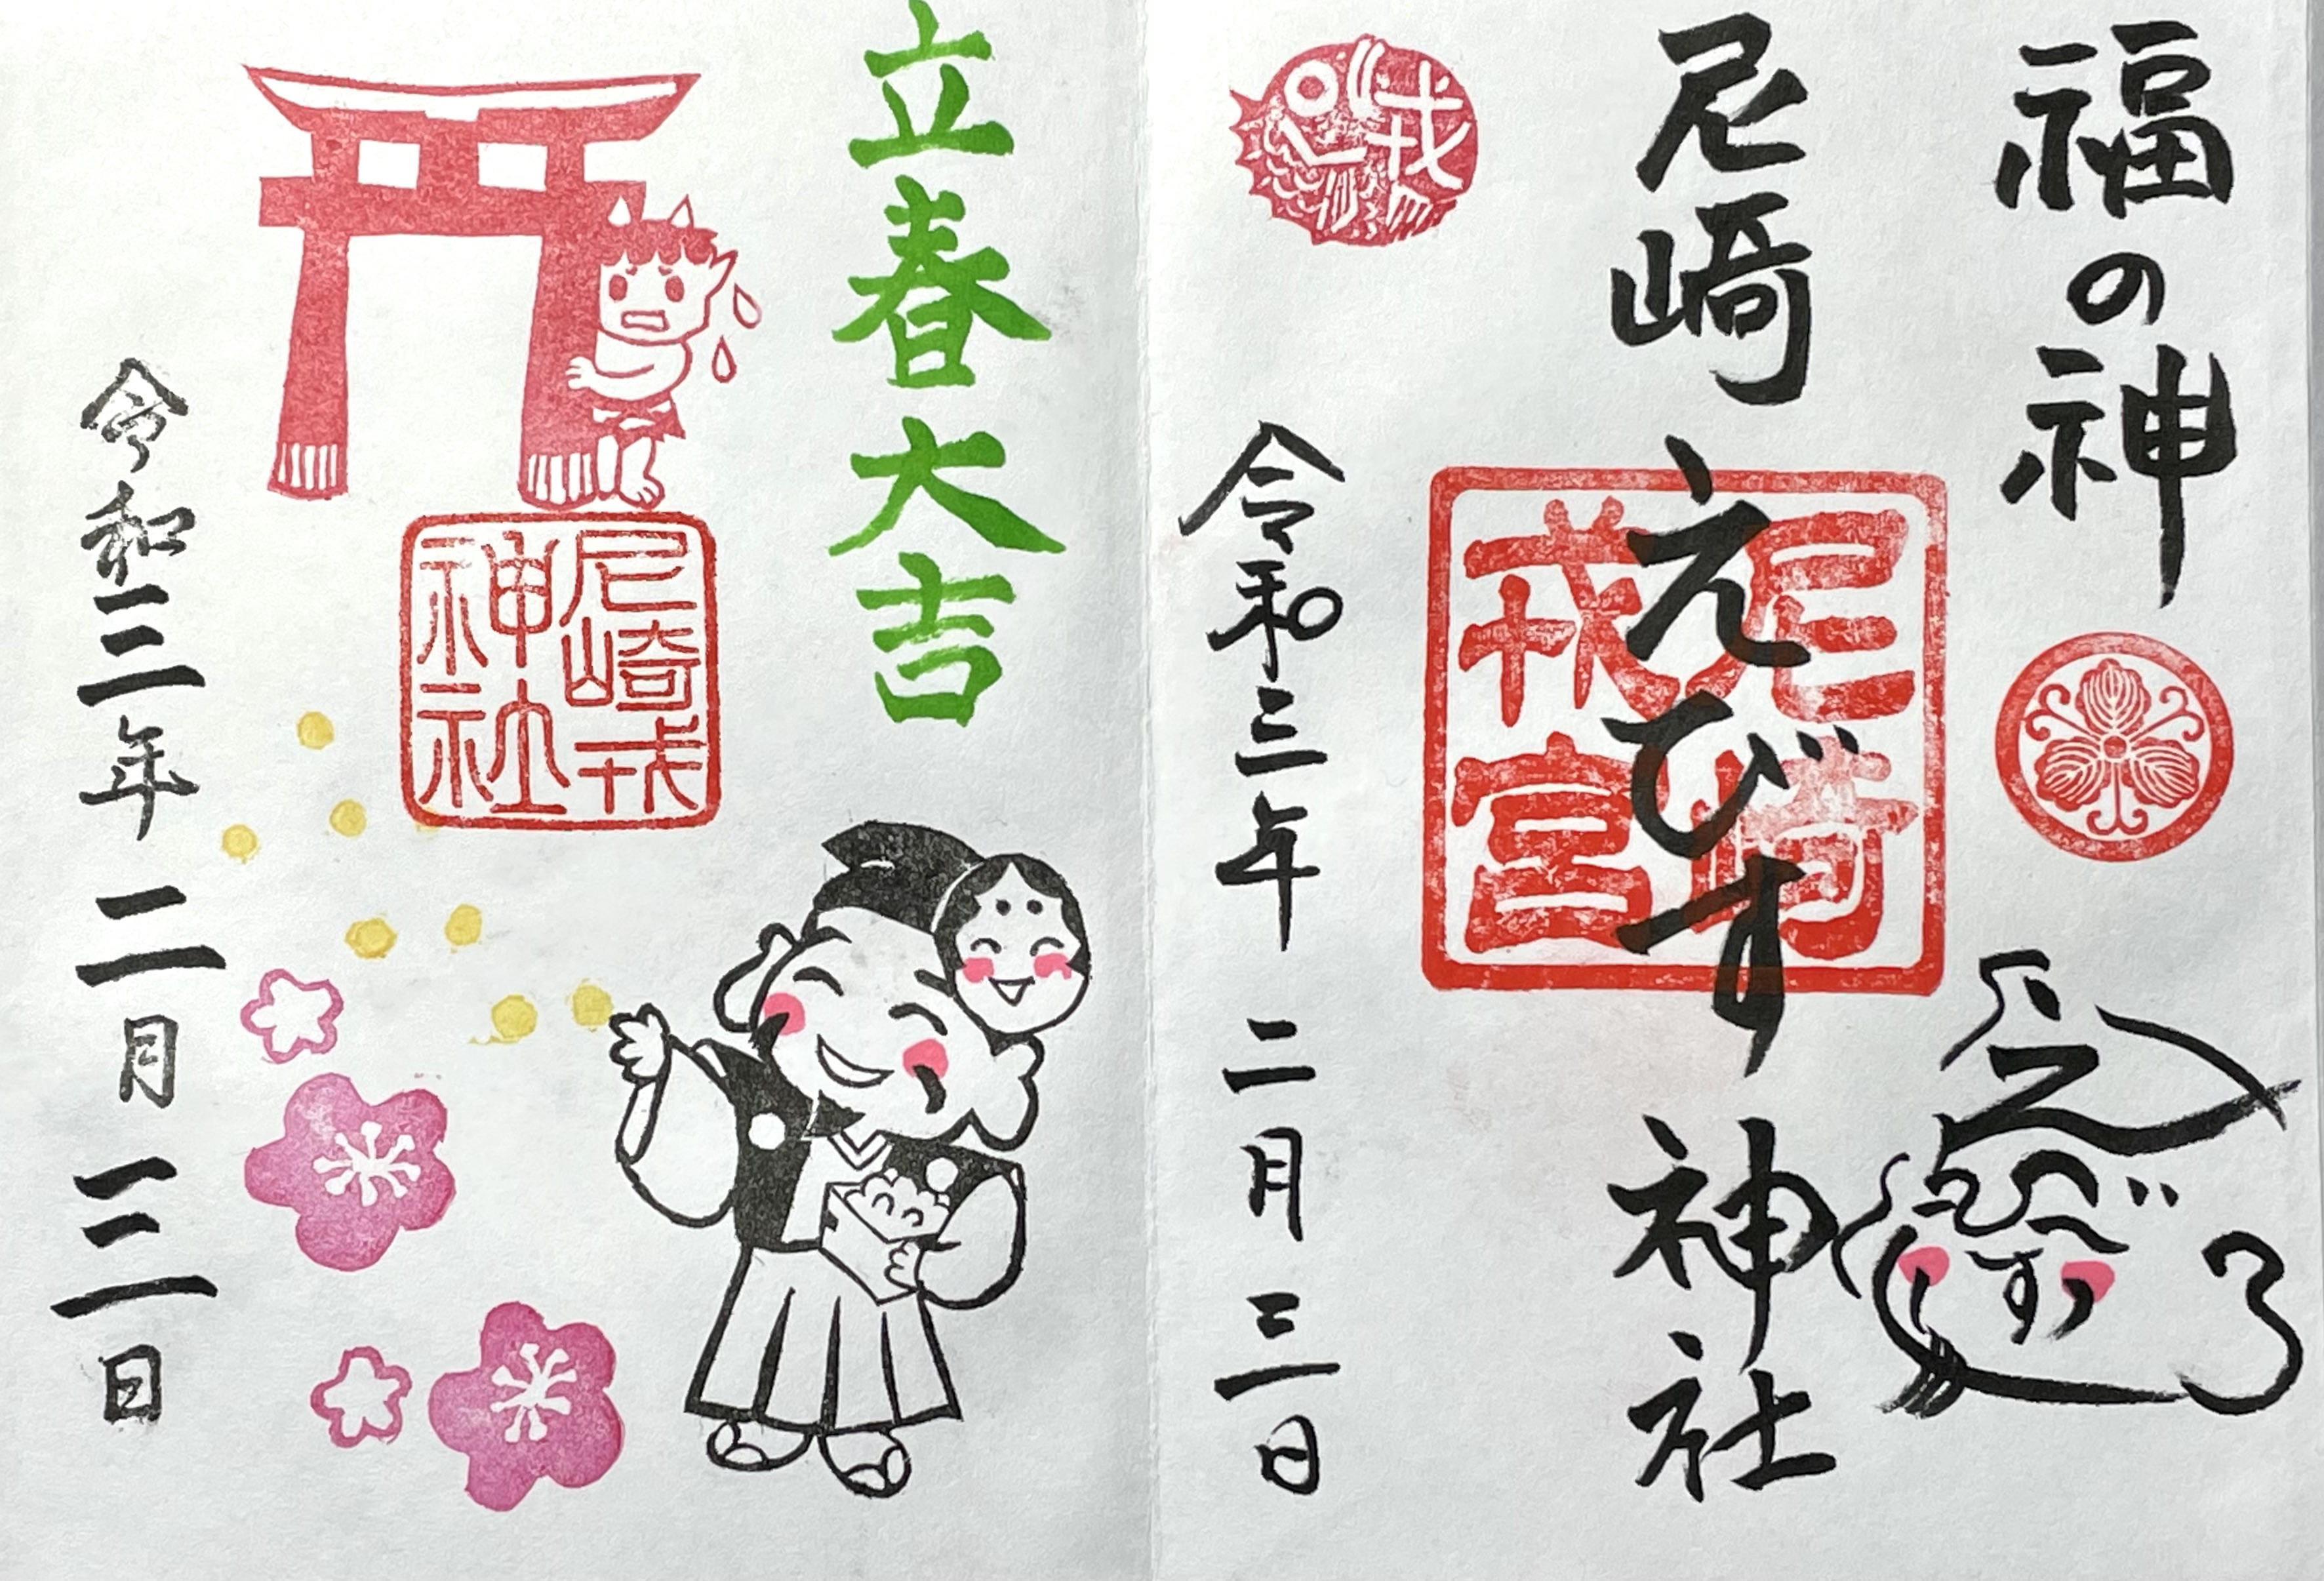 福の神
尼崎えびす神社
尼崎戎宮
戎
令和三年二月三日
えびす
立春大吉
尼崎戎神社
令和三年二月三日